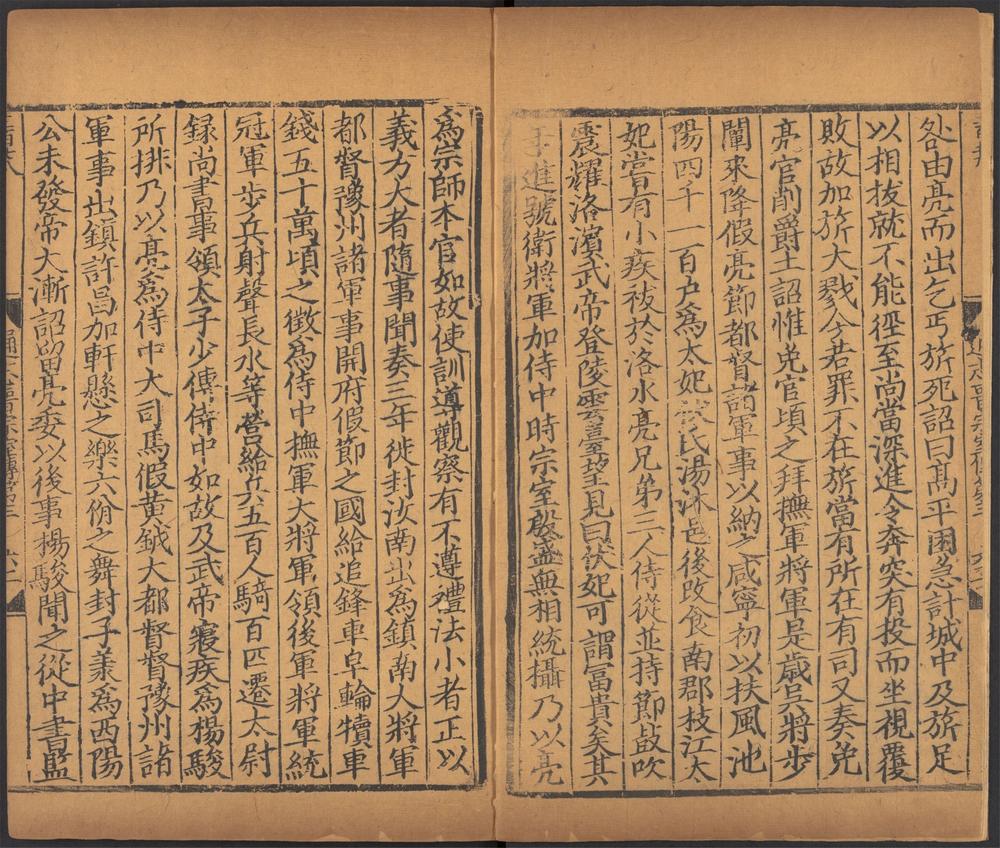 咎由亮而出乞丐旂死詔曰髙平困急計城中及旂足
以相拔就不能徑至尚當深進今奔突有投而坐視覆
敗故加旂大戮今若罪不在旂當有所在有司又奏免
亮官削爵土詔惟免官頃之拜撫軍將軍是歳吳將步
闡來降假亮節都督諸軍事以納之咸寧初以扶風池
陽四千一百户爲太妃伏氏湯沐邑後改食南郡枝江太
妃嘗有小疾祓於洛水亮兄弟三人侍從並持節鼓吹
震耀洛濱武帝登陵雲臺望見曰伏妃可謂冨貴矣其
年進號衛將軍加侍中時宗室殷盛無相統攝乃以亮
爲宗師本官如故使訓導觀察有不遵禮法小者正以
義方大者隨事聞奏三年徙封汝南出爲鎮南大將軍
都督豫州諸軍事開府假節之國給追鋒車皁輪犢車
錢五十萬頃之徴爲侍中撫軍大將軍領後軍將軍統
冠軍步兵射聲長水等營給兵五百人騎百匹遷太尉
録尚書事領太子少傅侍中如故及武帝寢疾爲楊駿
所排乃以亮爲侍中大司馬假黄鉞大都督督豫州諸
軍事出鎮許昌加軒懸之樂六佾之舞封子羕爲西陽
公未發帝大漸詔留亮委以後事楊駿聞之從中書監